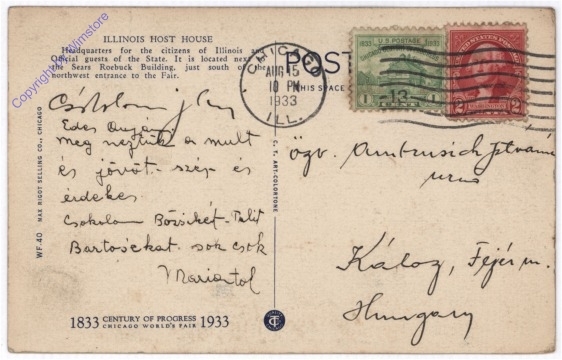 ILLINOIS HOST HOUSE
Headquarters for the citizens of Illinois and
Official guests of the State. It is located next
the Sears Roebuck Building, just south of the
northwest entrance to the Fair.
Copyright by Wimstore
Édes Anyám
meg néztük a mult
és jövöt. szép és
érdekes
Csokolom Bözsikét
Bartosékat sok csok
Mariatol
WF-40 MAX RIGOT SELLING CO., CHICAGO
1833 CENTURY OF PROGRESS 1933
CHICAGO WORLD'S FAIR
C. T. ART-COLORTONE
CT
CHICAGO
AUG 15
10 PM
1933
ILL.
POST
THIS SPACE
1833 U.S. POSTAGE 1933
1 1
13
UNITED STATES POSTAGE
2 WASHINGTON 2
özv. Ambrusich Istvánné
Káloz, Fejér m.
Hungary